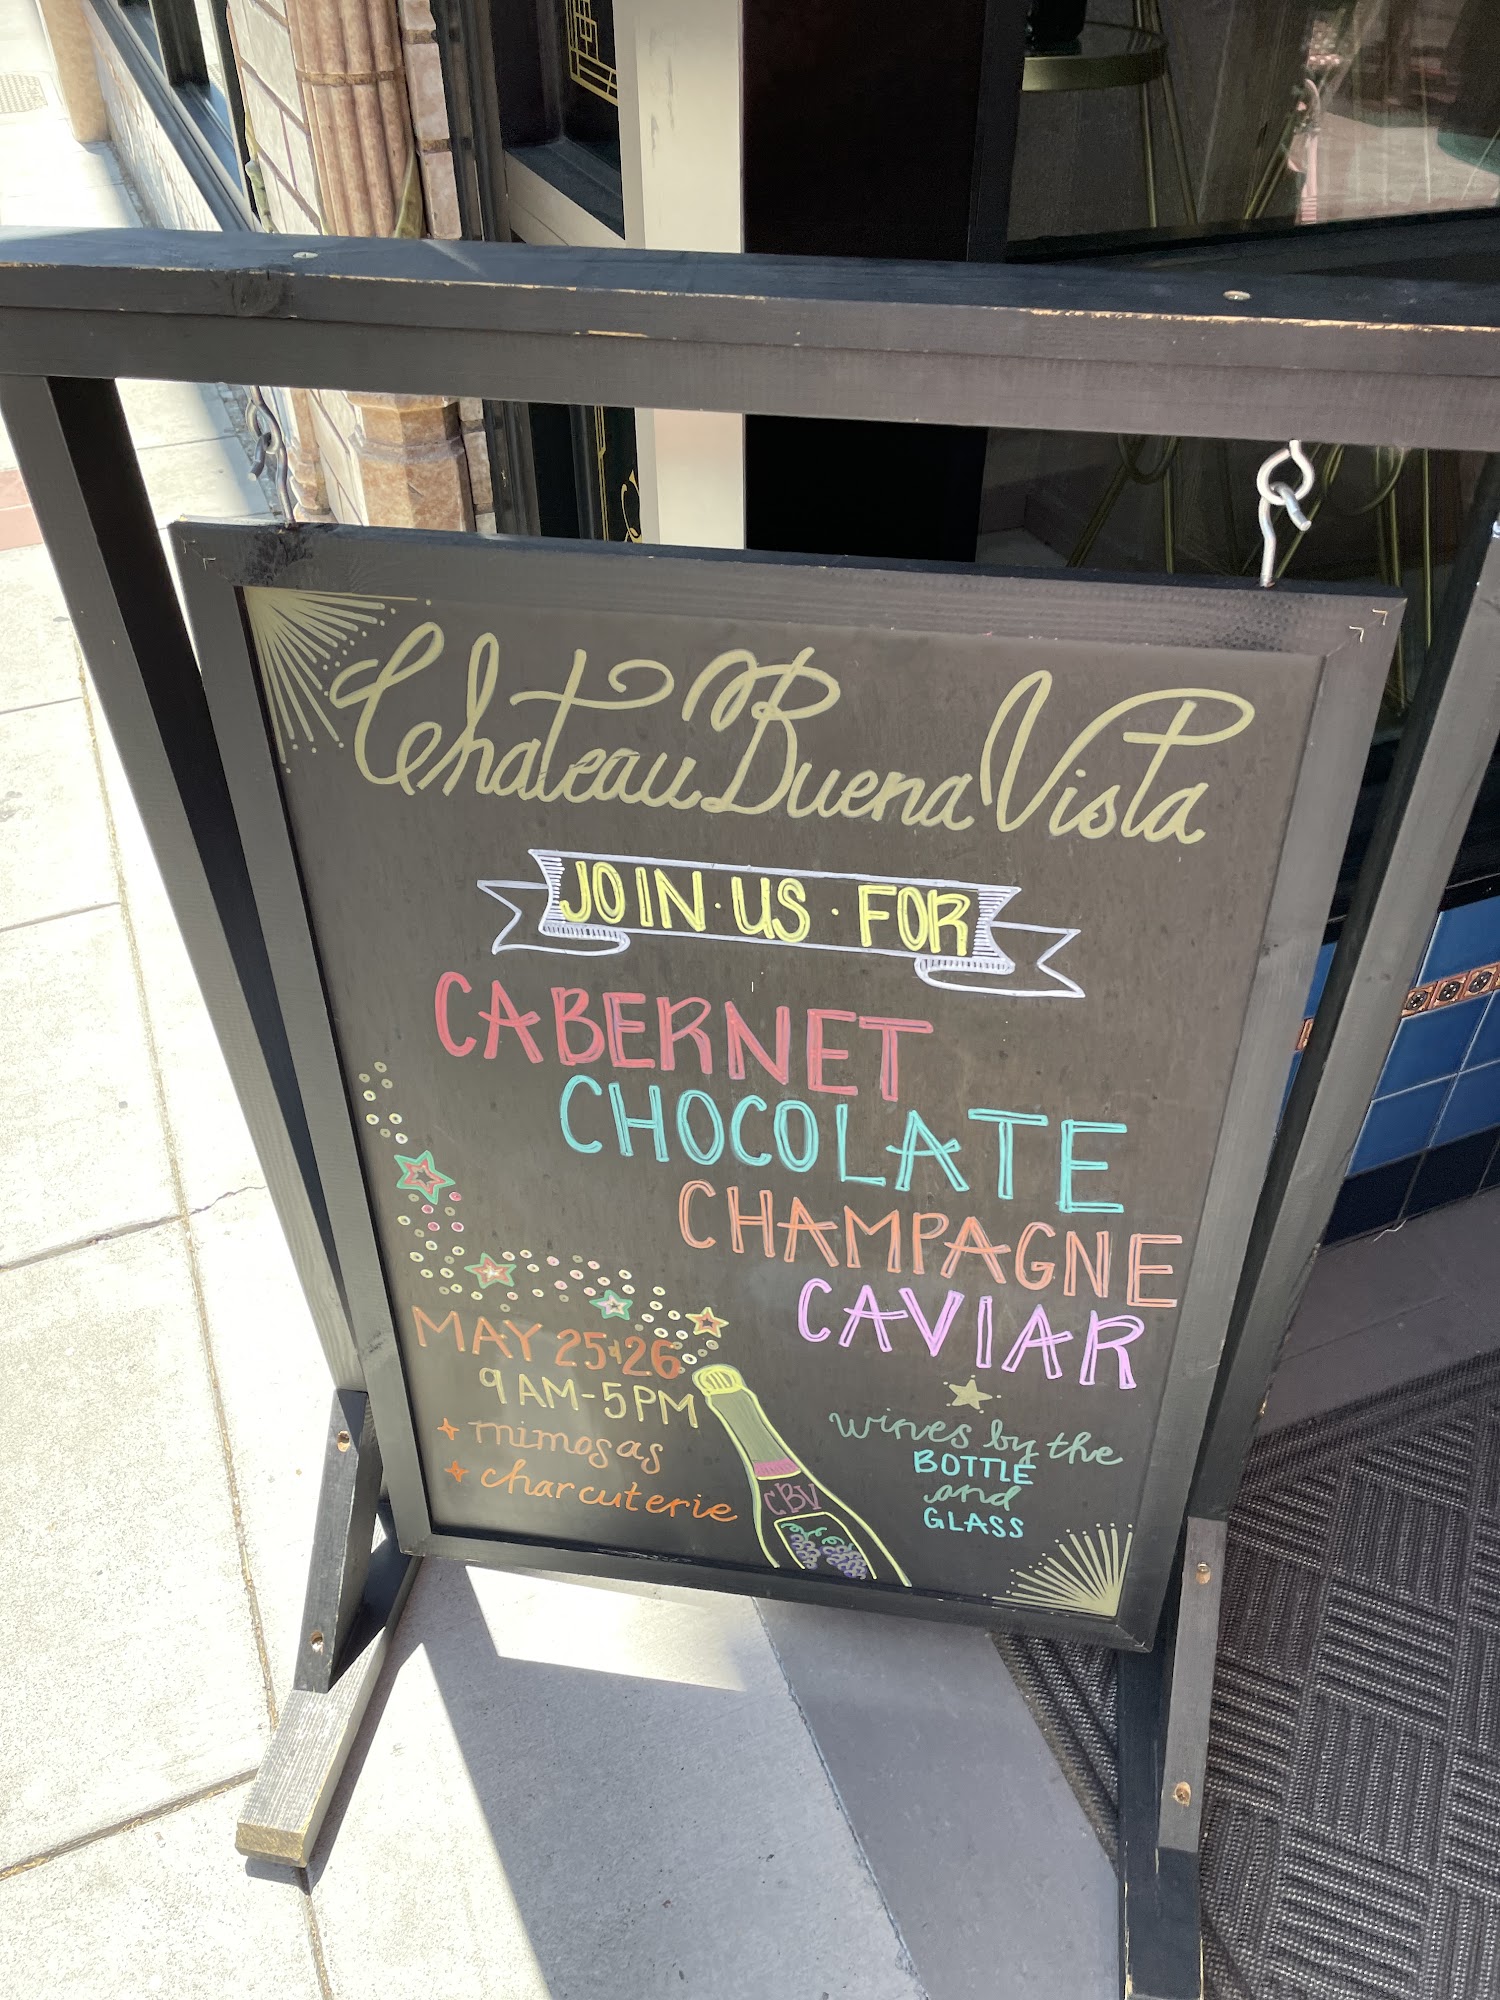 Chateau Buena Vista
JOIN · US · FOR
CABERNET
CHOCOLATE
CHAMPAGNE
CAVIAR
MAY 25+26
9AM-5PM
mimosas
charcuterie
CBV
wines by the
BOTTLE
and
GLASS